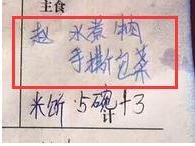 主食
赵 水煮牛肉
手撕包菜
米饭5碗+3